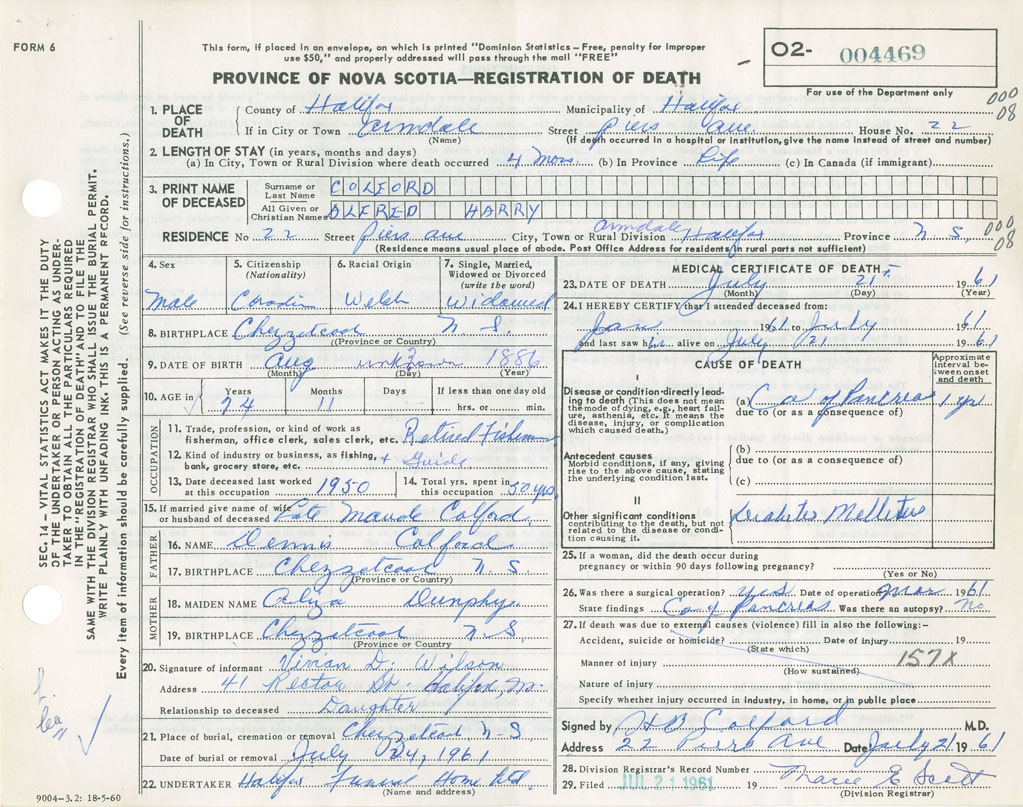 FORM 6
This form, if placed in an envelope, on which is printed "Dominion Statistics – Free, penalty for improper
use $50," and properly addressed will pass through the mail "FREE"
PROVINCE OF NOVA SCOTIA—REGISTRATION OF DEATH
02- 004469
For use of the Department only
000
08
1. PLACE OF DEATH
County of Halifax Municipality of Halifax
If in City or Town Armdale Street Piers Ave. House No. 22
(Name) (If death occurred in a hospital or institution, give the name instead of street and number)
2. LENGTH OF STAY (in years, months and days)
(a) In City, Town or Rural Division where death occurred 4 Mos. (b) In Province Life (c) In Canada (if immigrant)
3. PRINT NAME OF DECEASED
Surname or Last Name COLFORD
All Given or Christian Names ALFRED HARRY
RESIDENCE No 22 Street Piers Ave City, Town or Rural Division Armdale Halifax Province N S,
000
08
(Residence means usual place of abode. Post Office Address for residents in rural parts not sufficient)
SEC. 14 – VITAL STATISTICS ACT MAKES IT THE DUTY
OF THE UNDERTAKER OR PERSON ACTING AS UNDER-
TAKER TO OBTAIN ALL THE PARTICULARS REQUIRED
IN THE "REGISTRATION OF DEATH" AND TO FILE THE
SAME WITH THE DIVISION REGISTRAR WHO SHALL ISSUE THE BURIAL PERMIT.
WRITE PLAINLY WITH UNFADING INK. THIS IS A PERMANENT RECORD.
Every item of information should be carefully supplied. (See reverse side for instructions.)
4. Sex Male
5. Citizenship (Nationality)
6. Racial Origin Welsh
7. Single, Married, Widowed or Divorced (write the word) Widowed
8. BIRTHPLACE Chezzetcook N S.
(Province or Country)
9. DATE OF BIRTH Aug unknown 1886
(Month) (Day) (Year)
10. AGE in Years 74 Months 11 Days If less than one day old hrs. or min.
OCCUPATION
11. Trade, profession, or kind of work as
fisherman, office clerk, sales clerk, etc. Retired Fisherman
12. Kind of industry or business, as fishing,
bank, grocery store, etc. + Guide
13. Date deceased last worked at this occupation 1950
14. Total yrs. spent in this occupation 50 yrs
15. If married give name of wife or husband of deceased Late Maude Colford.
FATHER
16. NAME Dennis Colford
17. BIRTHPLACE Chezzetcook N S
(Province or Country)
MOTHER
18. MAIDEN NAME Dunphy
19. BIRTHPLACE Chezzetcook N.S.
(Province or Country
20. Signature of informant Vivian D. Wilson
Address 41 Rector St. Halifax,
Relationship to deceased Daughter
21. Place of burial, cremation or removal Chezzetcook N-S
Date of burial or removal July 24, 1961
22. UNDERTAKER Halifax Funeral Home Ltd.
(Name and address)
9004-3.2: 18-5-60
MEDICAL CERTIFICATE OF DEATH
23. DATE OF DEATH July 21 1961
(Month) (Day) (Year)
24. I HEREBY CERTIFY that I attended deceased from:
Jan 1961 to July 1961
and last saw him alive on July 21 1961
CAUSE OF DEATH
Approximate interval between onset and death
I
Disease or condition directly lead-
ing to death (This does not mean
the mode of dying, e.g., heart fail-
ure, asthenia, etc. It means the
disease, injury, or complication
which caused death.)
(a) Ca of Pancreas 1 yr
due to (or as a consequence of)
Antecedent causes
Morbid conditions, if any, giving
rise to the above cause, stating
the underlying condition last.
(b)
due to (or as a consequence of)
(c)
II
Other significant conditions
contributing to the death, but not
related to the disease or condi-
tion causing it.
Diabetes Mellitus
25. If a woman, did the death occur during
pregnancy or within 90 days following pregnancy?
(Yes or No)
26. Was there a surgical operation? yes Date of operation Mar 1961
State findings Ca of Pancreas Was there an autopsy? no
27. If death was due to external causes (violence) fill in also the following:-
Accident, suicide or homicide? Date of injury 19
(State which)
Manner of injury 157X
(How sustained)
Nature of injury
Specify whether injury occurred in industry, in home, or in public place
Signed by H B Colford M.D.
Address 22 Piers Ave Date July 21 1961
28. Division Registrar's Record Number
29. Filed JUL 21 1961 19 Marie E Scott
(Division Registrar)